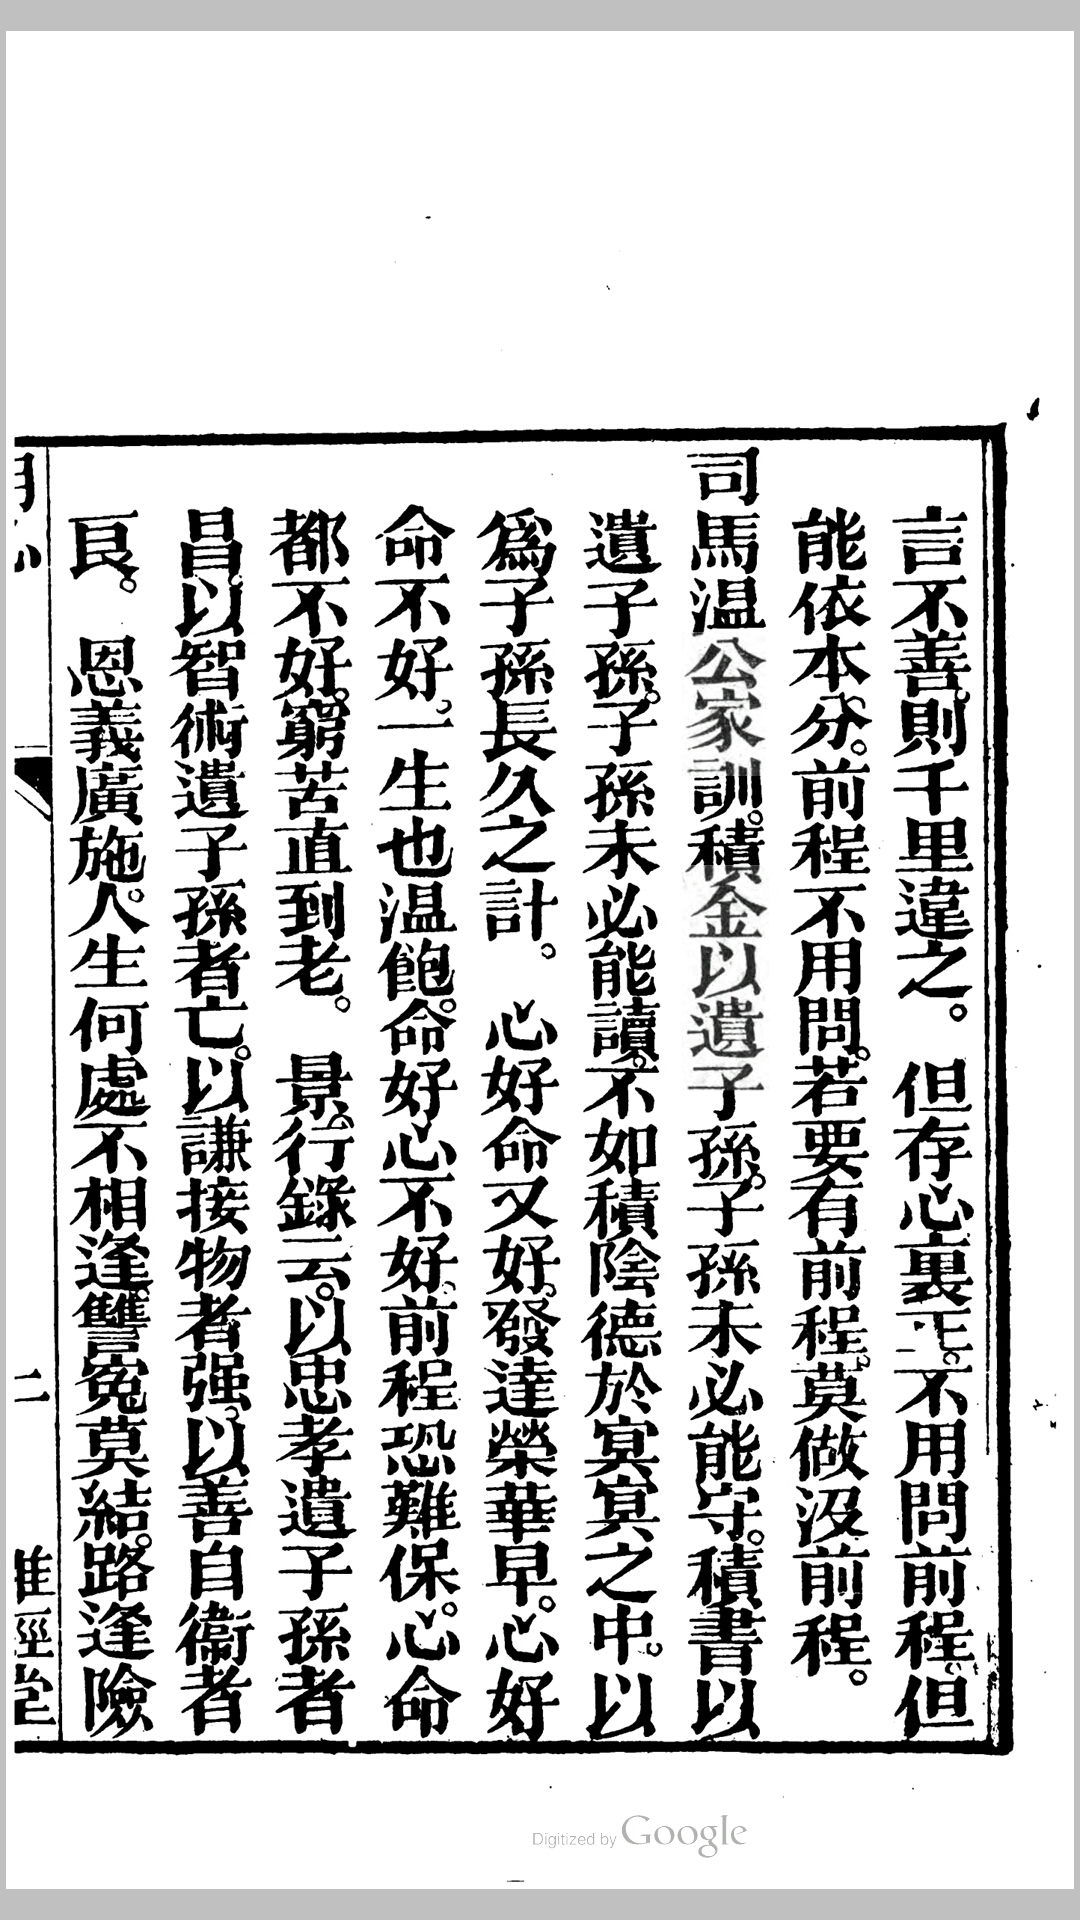 言不善。則千里違之。　但存心裏正。不用問前程。但
能依本分。前程不用問。若要有前程。莫做沒前程。
司馬温公家訓。積金以遺子孫。子孫未必能守。積書以
遺子孫。子孫未必能讀。不如積陰德於冥冥之中。以
爲子孫長久之計。　心好命又好。發達榮華早。心好
命不好。一生也温飽。命好心不好。前程恐難保。心命
都不好。窮苦直到老。　景行錄云。以忠孝遺子孫者
昌。以智術遺子孫者亡。以謙接物者强。以善自衞者
良。　恩義廣施。人生何處不相逢。讐寃莫結。路逢險
二
Digitized by Google